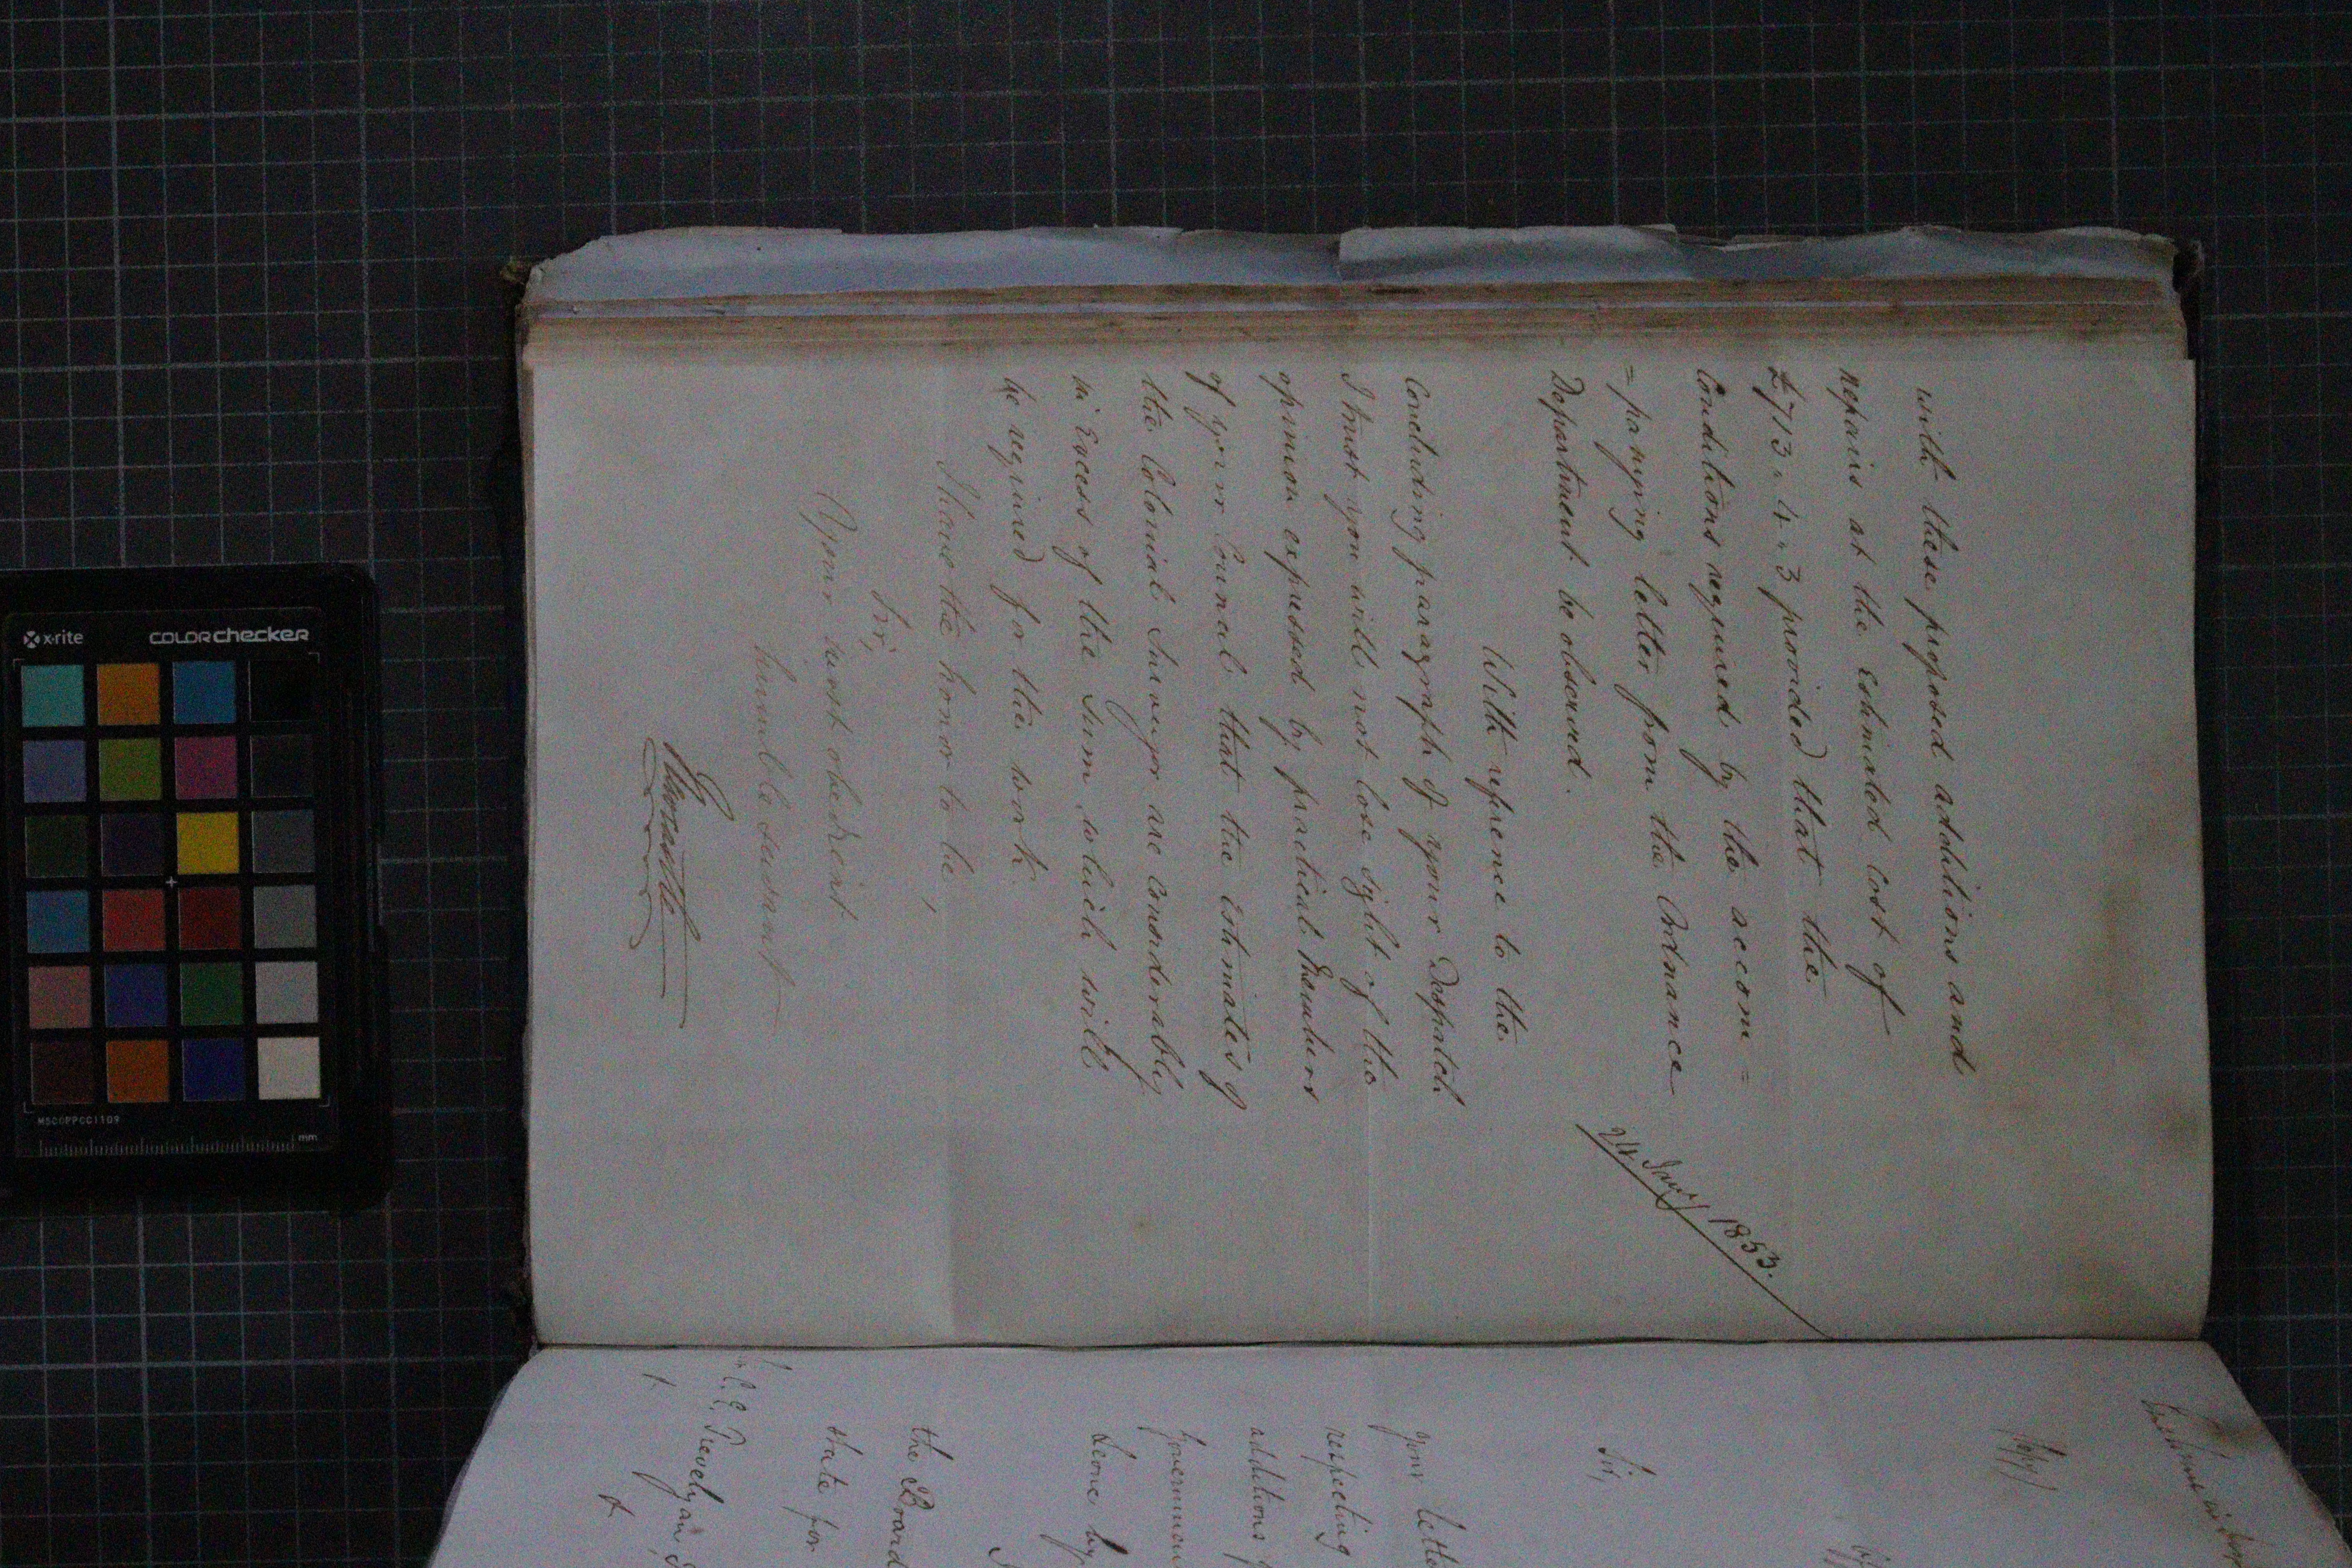 with these proposed additions and
repairs at the estimated cost of
£713 . 4 . 3 provided that the
Conditions required by the accom =
= panying letter from the Ordnance
Department be observed.
With reference to the
Concluding paragraph of your Despatch
I trust you will not lose sight of the
opinion expressed by practical Members
of your Council that the estimates of
the Colonial Surveyor are considerably
in Excess of the Sum which will
be required for the work.
I have the honor to be,
Sir,
Your most obedient
humble servant
Newcastle
24 Jany/ 1853.
Copy/
Sir,
your letter
respecting
additions
Leone by
the Board
state for
C. E. Trevelyan
x-rite
COLORchecker
MSCCPPCC1109
mm